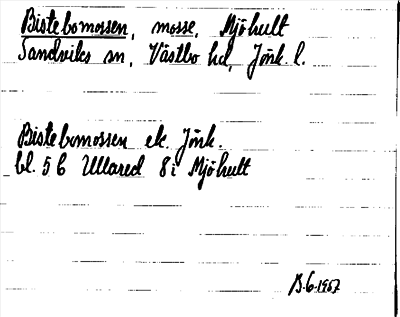 Bistebomossen, mosse, Mjöhult
Sandviks sn, Västbo hd, Jönk. l.
Bistebomossen ek. Jönk.
bl. 5 C Ullared 8 i Mjöhult
B.6.1967